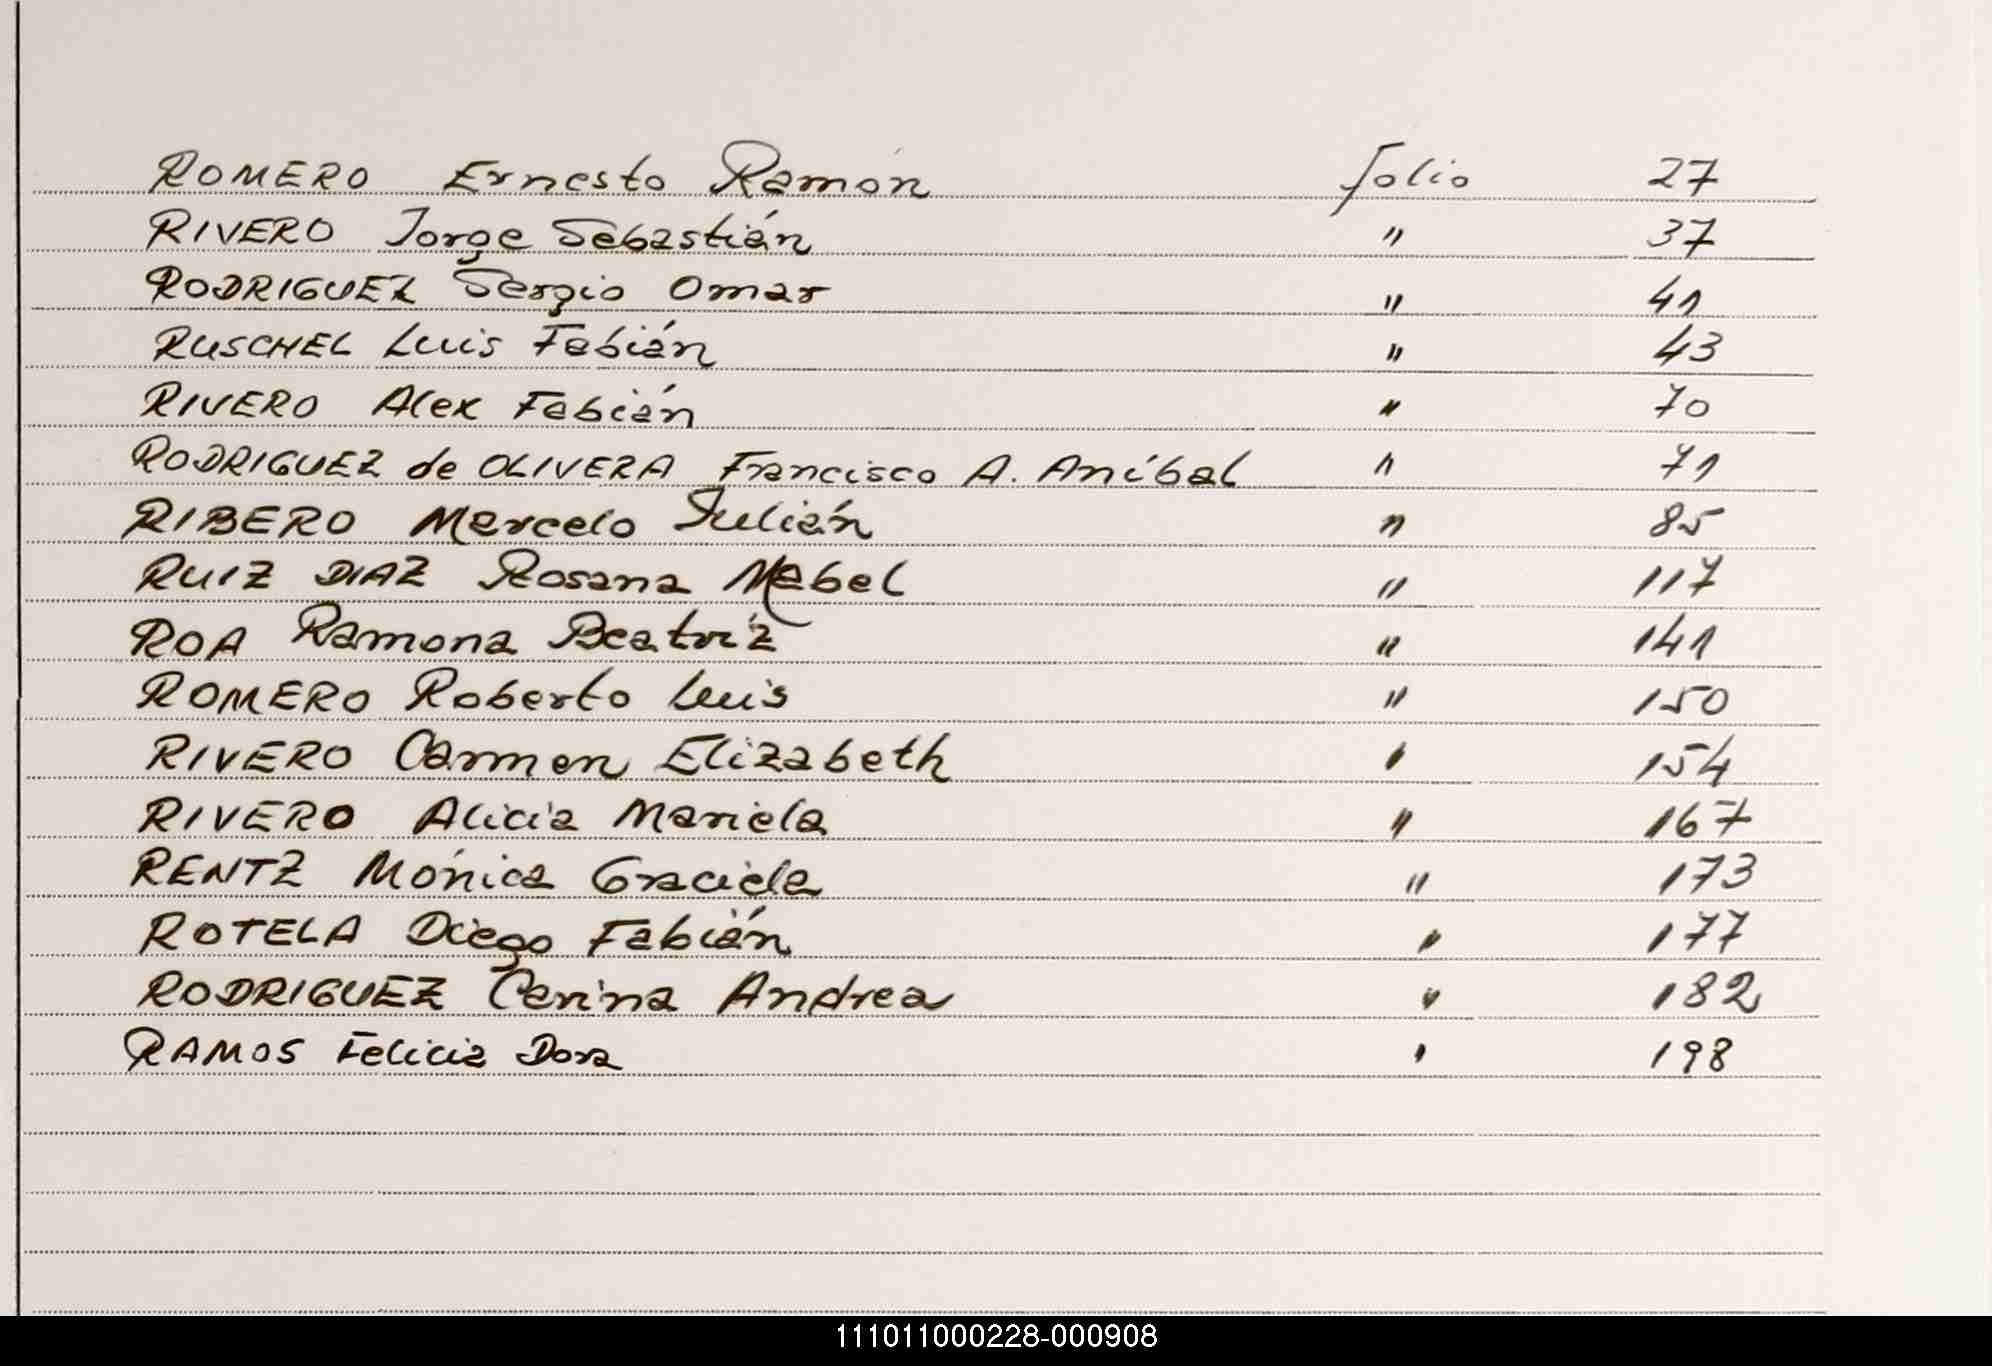 ROMERO Ernesto Ramón folio 27
RIVERO Jorge Sebastián " 37
RODRIGUEZ Sergio Omar " 41
RUSCHEL Luis Fabián " 43
RIVERO Alex Fabián " 70
RODRIGUEZ de OLIVERA Francisco A. Aníbal " 71
RIBERO Marcelo Julián " 85
RUIZ DIAZ Rosana Mabel " 117
ROA Ramona Beatriz " 141
ROMERO Roberto Luis " 150
RIVERO Carmen Elizabeth " 154
RIVERO Alicia Mariela " 167
RENTZ Mónica Graciela " 173
ROTELA Diego Fabián " 177
RODRIGUEZ Carina Andrea " 182
RAMOS Felicia Dora " 198
111011000228-000908